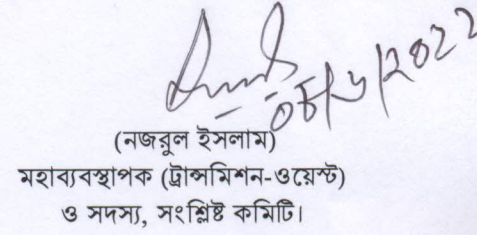 (নজরুল ইসলাম)
মহাব্যবস্থাপক (ট্রান্সমিশন-ওয়েস্ট)
ও সদস্য, সংশ্লিষ্ট কমিটি।